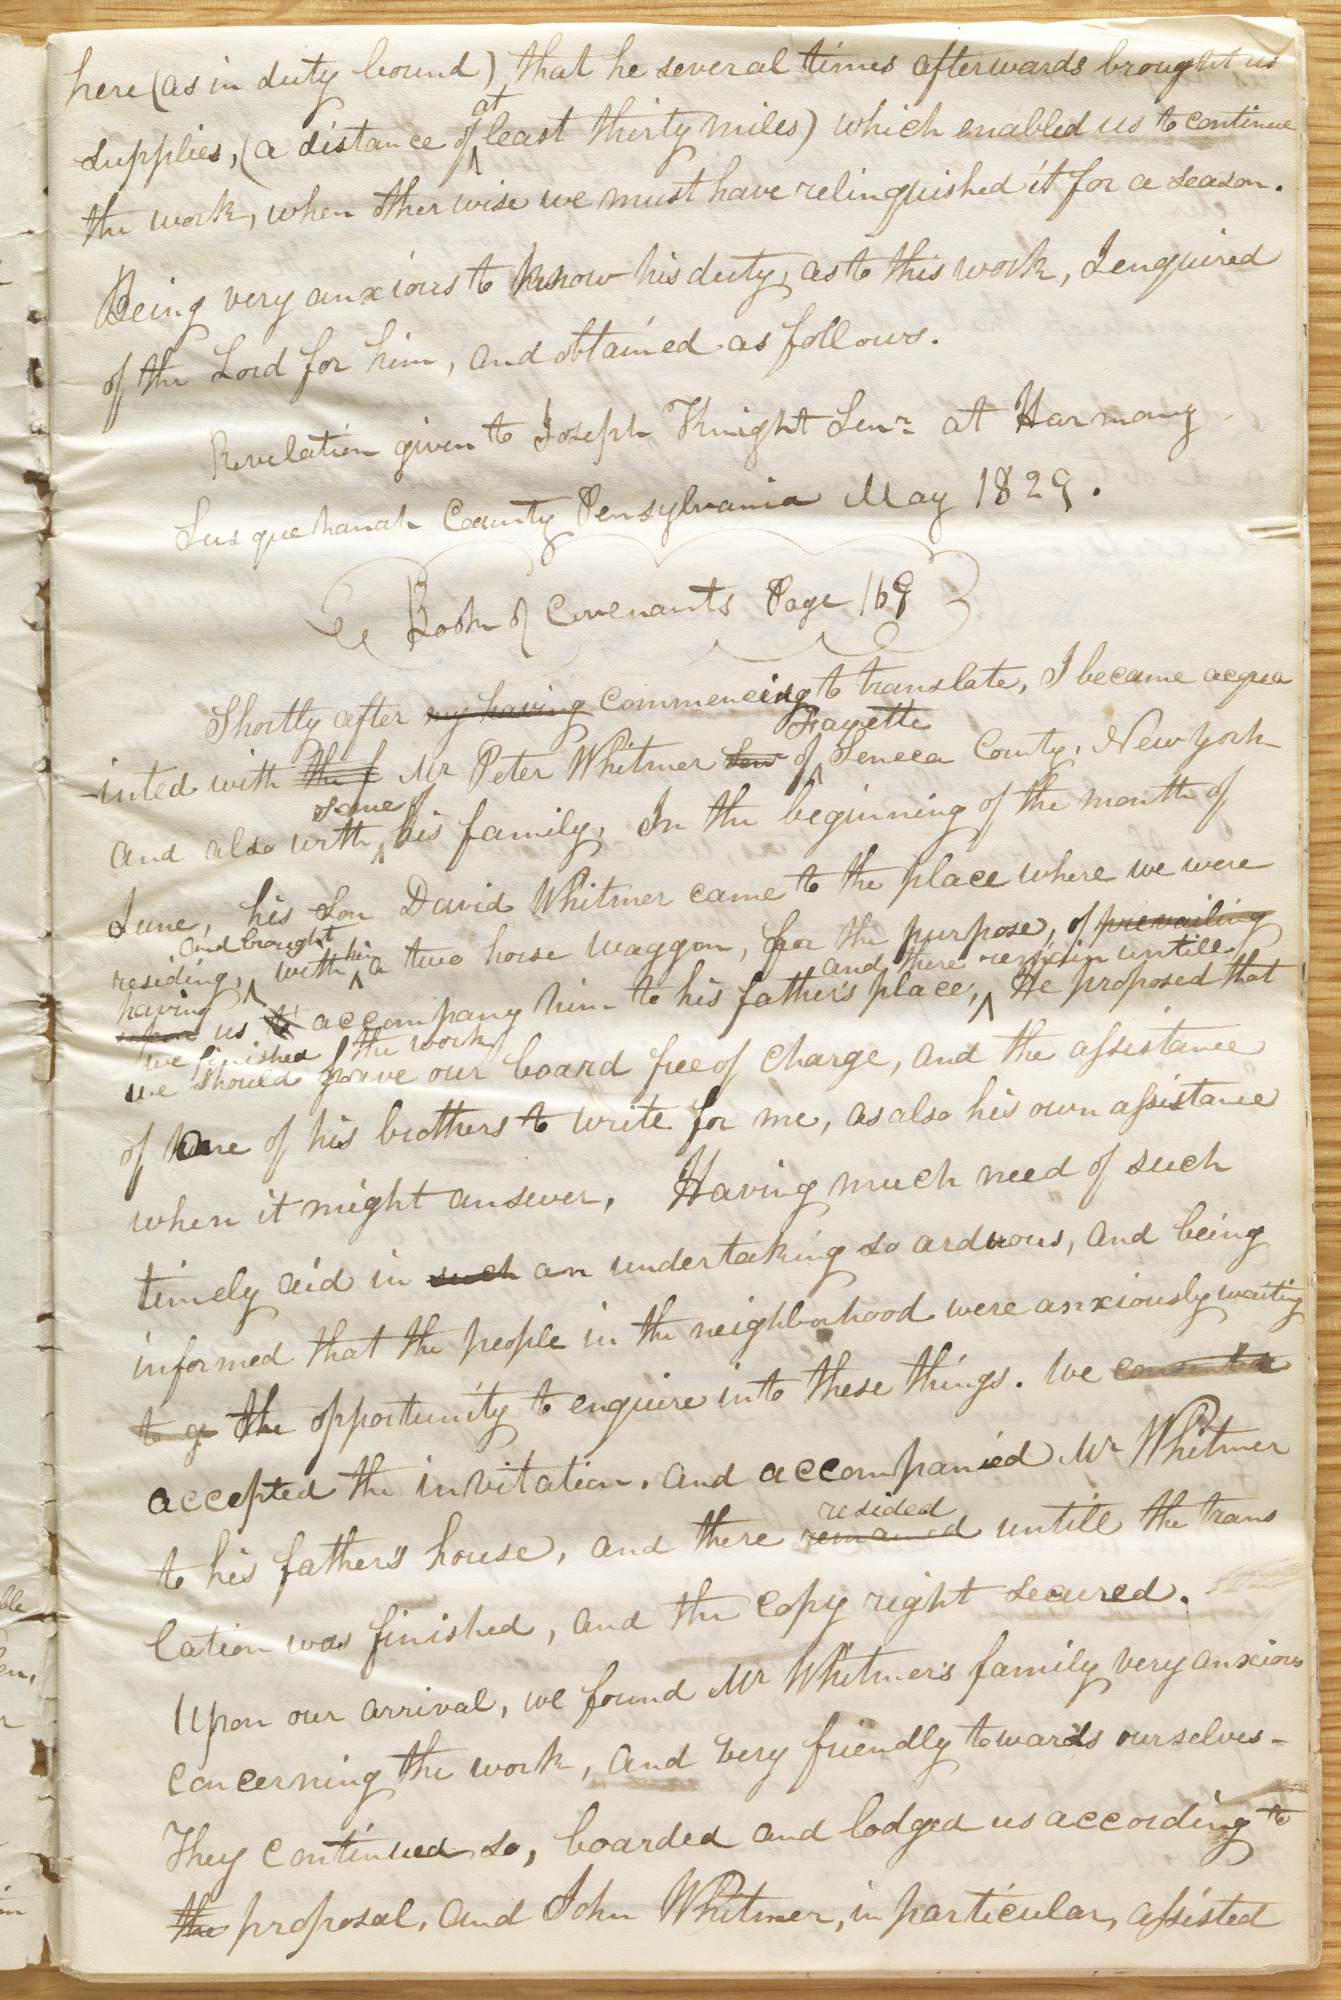 here (as in duty bound) that he several times afterwards brought us
at
supplies, (a distance of least thirty miles) which enabled us to continue
the work, when otherwise we must have relinquished it for a season.
Being very anxious to know his duty, as to this work, I enquired
of the Lord for him, and obtained as follows.
Revelation given to Joseph Knight Senr at Harmony
Susquehanah County Pensylvania May 1829.
Book of Covenants Page 169
Shortly after my having commencing to translate, I became acqua
Fayette
-inted with the f Mr Peter Whitmer Senr of Seneca County, New York
some of
and also with his family, In the beginning of the month of
June, his son David Whitmer came to the place where we were
and brought him
residing, with a two horse waggon, for the purpose, of prevailing
and there remain untill
having us to accompany him to his father's place, He proposed that
we finished the work
we should have our board free of charge, and the assistance
of one of his brothers to write for me, as also his own assistance
when it might answer, Having much need of such
timely aid in such an undertaking so arduous, and being
informed that the people in the neighborhood were anxiously waiting
to g the opportunity to enquire into these things. We consented
accepted the invitation, and accompanied Mr Whitmer
resided
to his father's house, and there remained untill the trans
lation was finished, and the copy right secured.
Upon our arrival, we found Mr Whitmer's family very anxious
concerning the work, and very friendly towards ourselves-
They continued so, boarded and lodged us according to
the proposal, and John Whitmer, in particular, assisted